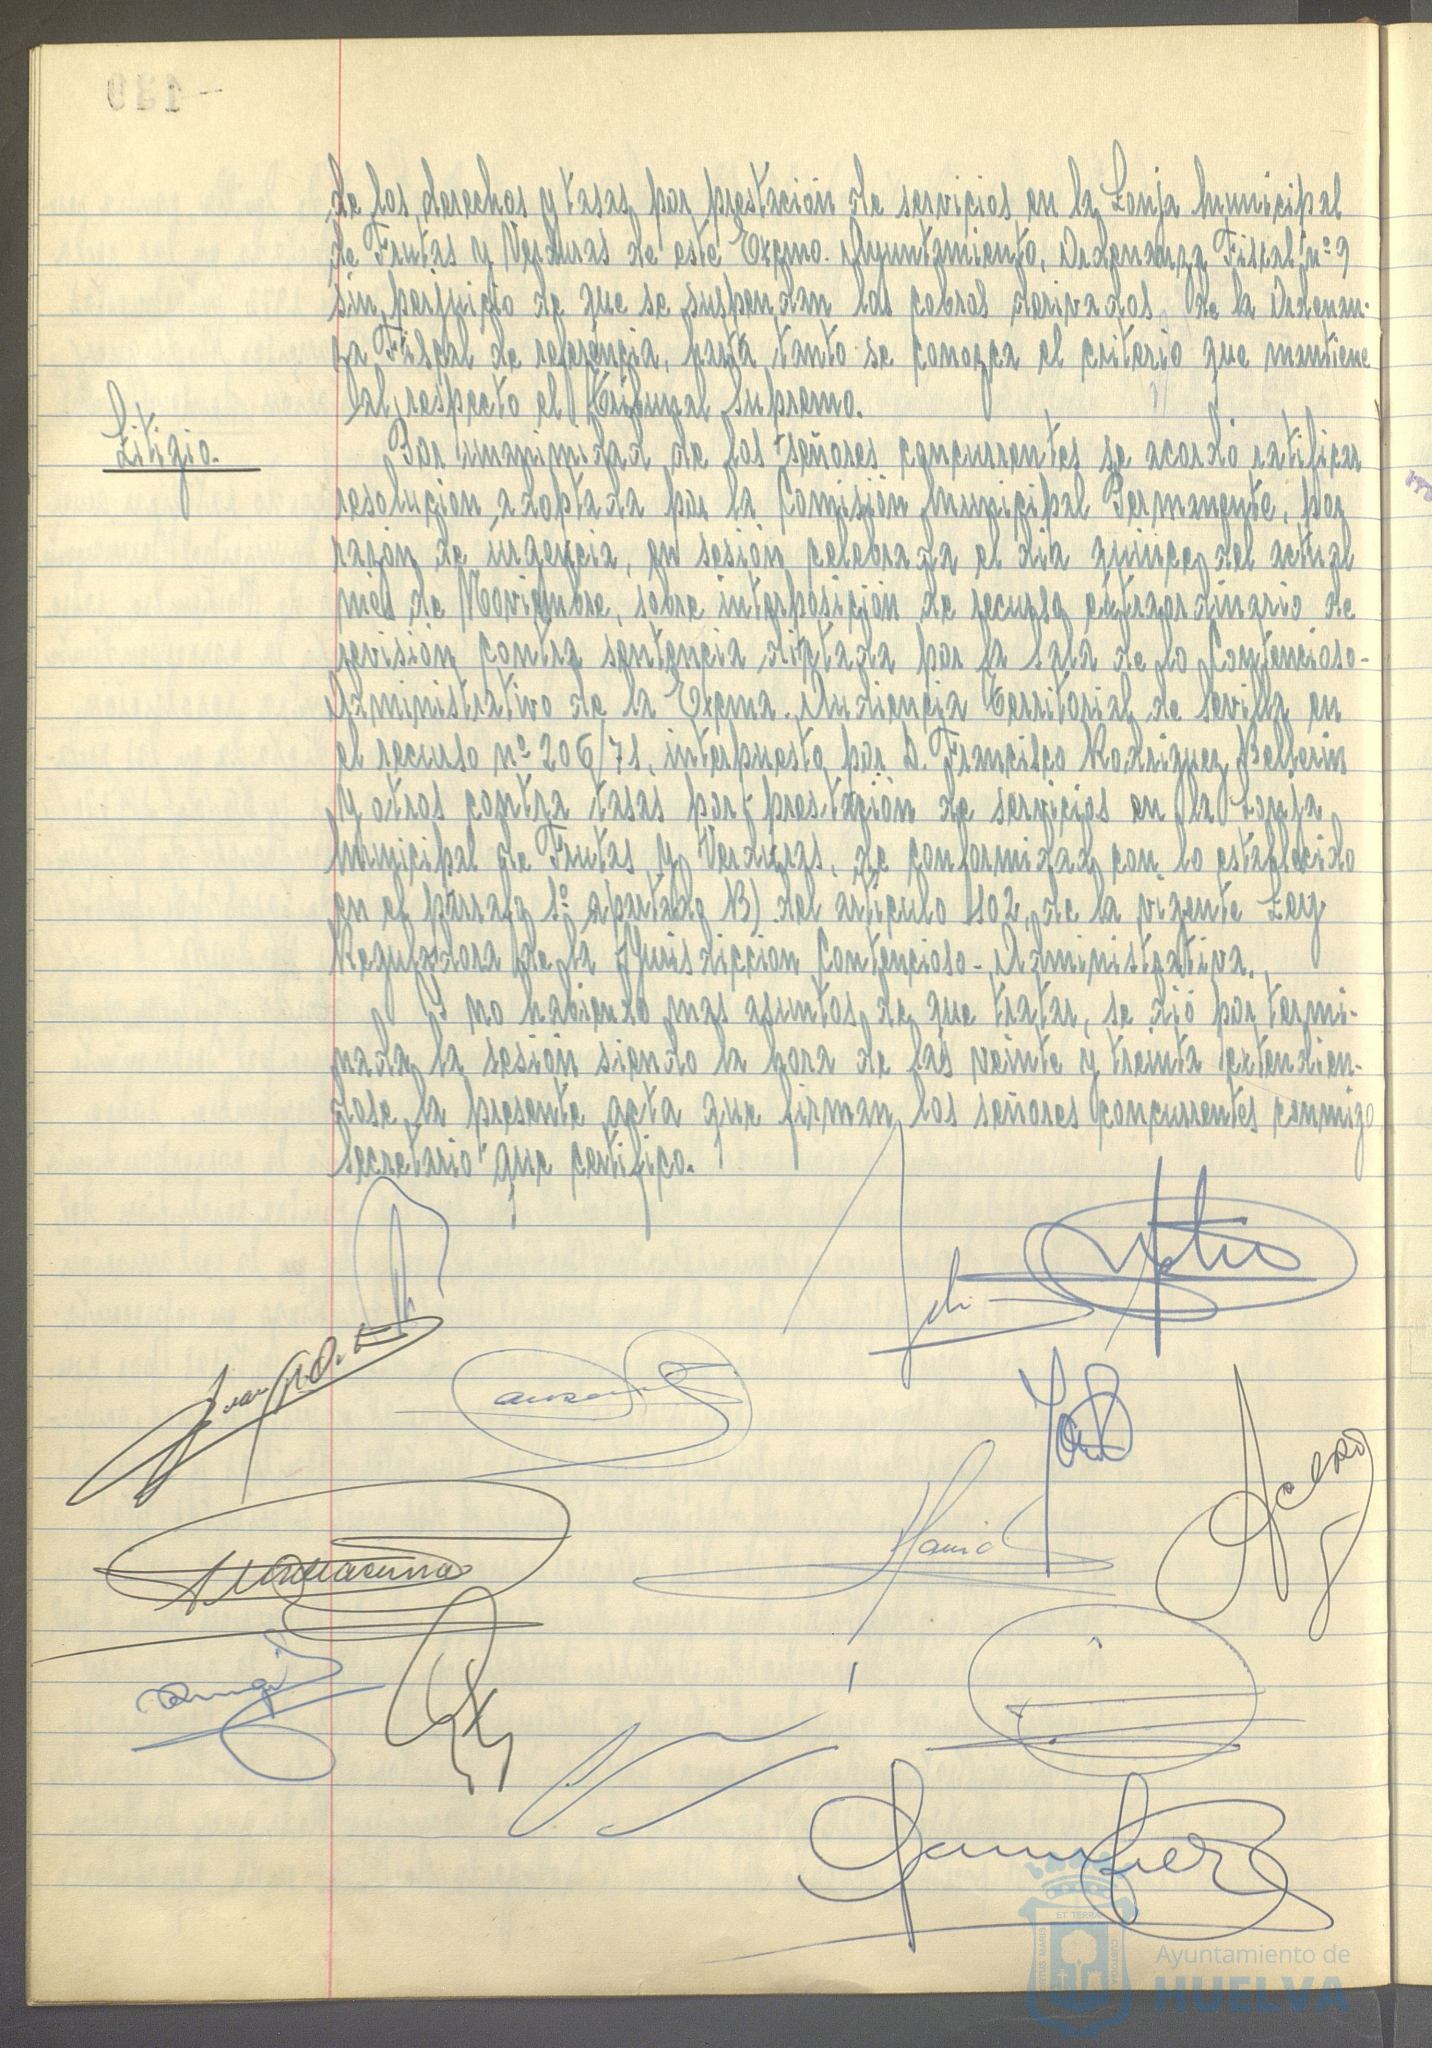 de los derechos y tasas por prestación de servicios en la Lonja Municipal
de Frutas y Verduras de este Excmo. Ayuntamiento, Ordenanza Fiscal nº 9
sin perjuicio de que se suspendan los cobros derivados de la Ordenan-
za Fiscal de referencia, hasta tanto se conozca el criterio que mantiene
al respecto el Tribunal Supremo.
Litigio.
Por unanimidad de los señores concurrentes se acordó ratificar
resolución adoptada por la Comisión Municipal Permanente, por
razón de urgencia, en sesión celebrada el día quince del actual
mes de Noviembre, sobre interposición de recurso extraordinario de
revisión contra sentencia dictada por la Sala de lo Contencioso-
Administrativo de la Excma. Audiencia Territorial de Sevilla en
el recurso nº 206/71, interpuesto por D. Francisco Rodriguez Bellerin
y otros contra tasas por prestación de servicios en la Lonja
Municipal de Frutas y Verduras, de conformidad con lo establecido
en el párrafo 1º apartado B) del artículo 102, de la vigente Ley
Reguladora de la Jurisdiccion Contencioso-Administrativa.
Y no habiendo mas asuntos de que tratar, se dió por termi-
nada la sesión siendo la hora de las veinte y treinta extendien-
dose la presente acta que firman los señores concurrentes conmigo
Secretario que certifico.
ET TERRA
Ayuntamiento de
HUELVA